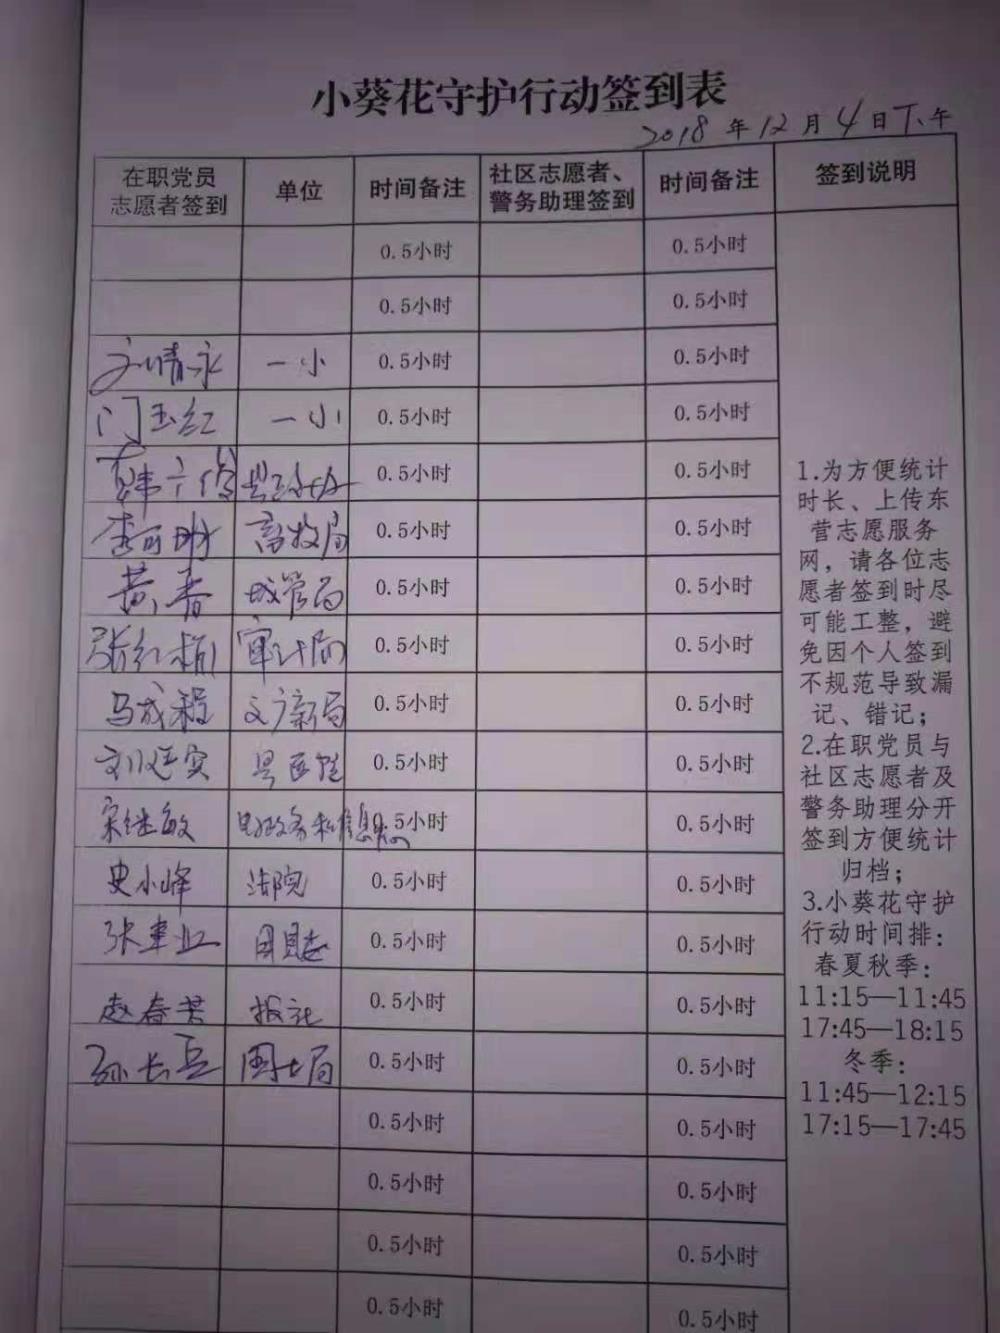 小葵花守护行动签到表
2018年12月4日下午
在职党员
志愿者签到
单位
时间备注
社区志愿者、
警务助理签到
时间备注
签到说明
0.5小时 0.5小时
0.5小时 0.5小时
刘晴永 一小 0.5小时 0.5小时
门玉红 一小 0.5小时 0.5小时
0.5小时 0.5小时
畜牧局 0.5小时 0.5小时
黄春 城管局 0.5小时 0.5小时
张红梅 审计局 0.5小时 0.5小时
马成程 文广新局 0.5小时 0.5小时
刘廷实 县医院 0.5小时 0.5小时
宋继敏 0.5小时 0.5小时
史小峰 法院 0.5小时 0.5小时
张建业 0.5小时 0.5小时
赵春芳 报社 0.5小时 0.5小时
孙长兵 国土局 0.5小时 0.5小时
0.5小时 0.5小时
0.5小时 0.5小时
0.5小时 0.5小时
0.5小时 0.5小时
1.为方便统计
时长、上传东
营志愿服务
网，请各位志
愿者签到时尽
可能工整，避
免因个人签到
不规范导致漏
记、错记；
2.在职党员与
社区志愿者及
警务助理分开
签到方便统计
归档；
3.小葵花守护
行动时间排：
春夏秋季：
11:15—11:45
17:45—18:15
冬季：
11:45—12:15
17:15—17:45